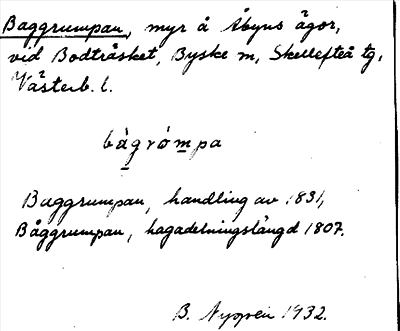 Baggrumpan, myr å Åbyns ägor,
vid Bodträsket, Byske sn, Skellefteå tg,
Västerb. l.
bàgrómpa
Baggrumpan, handling av 1831,
Båggrumpan, hagadelningslängd 1807.
B. Nygren 1932.